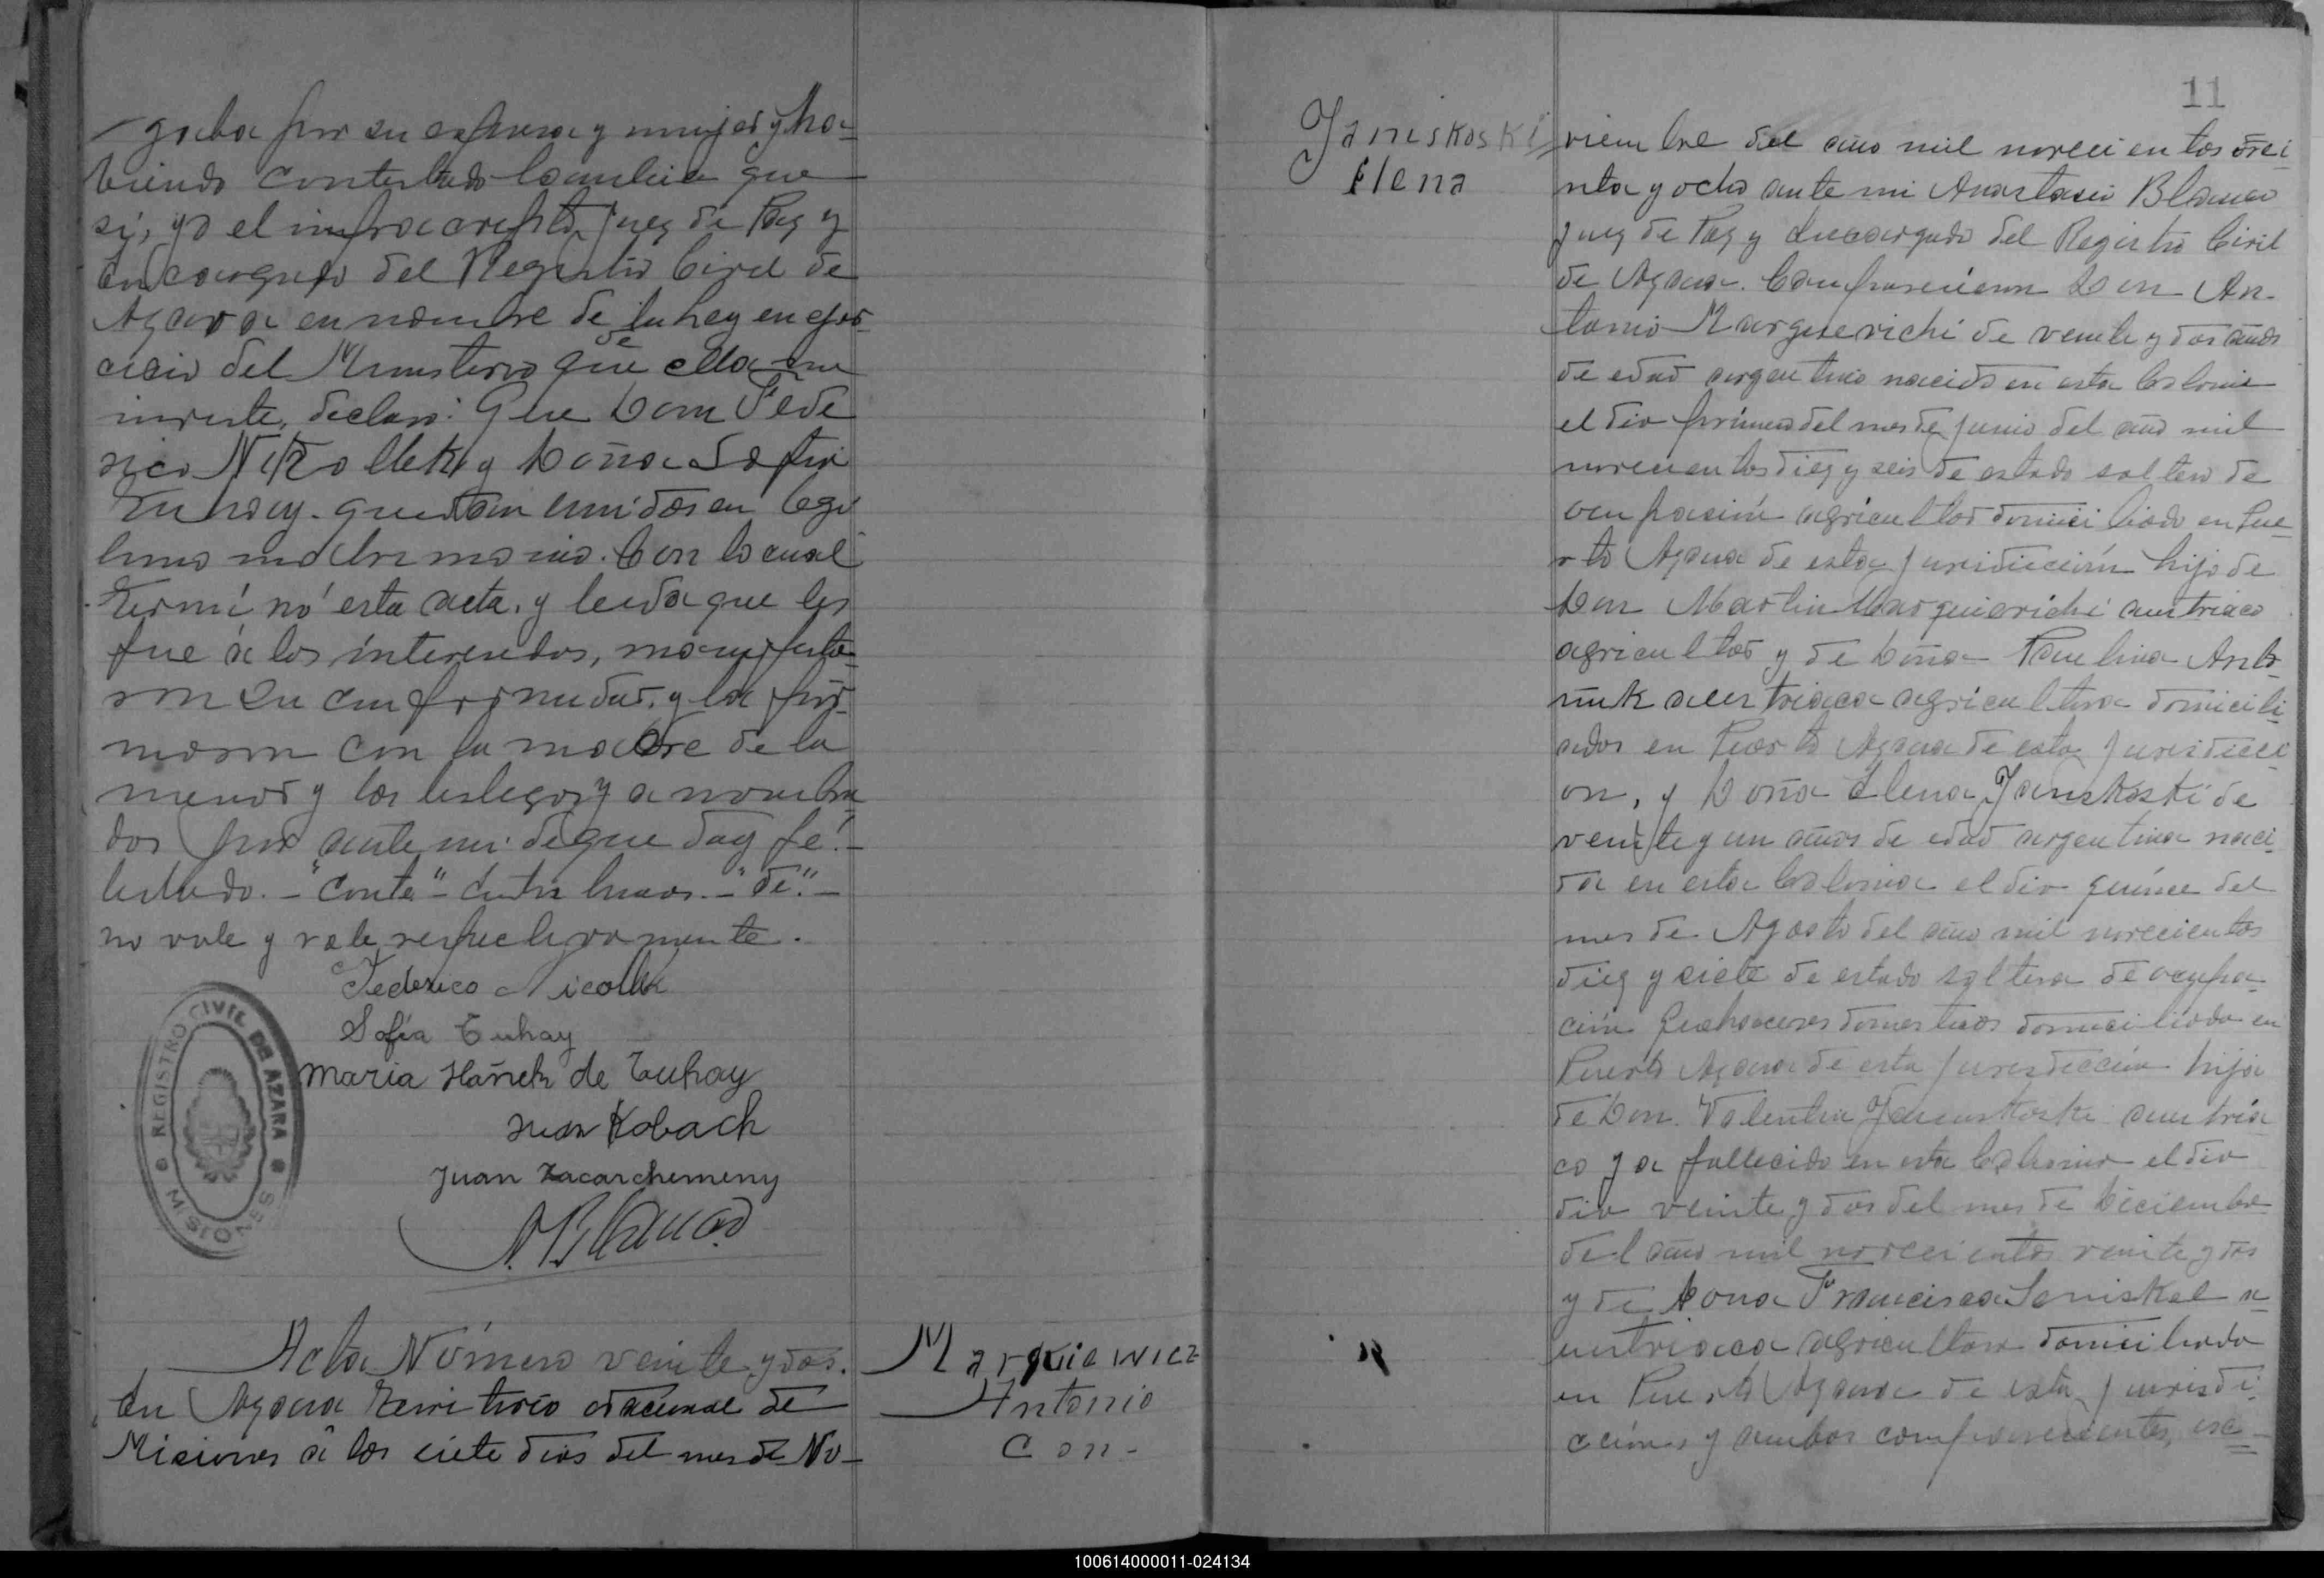 gaba por su esposa y mujer y ha-
biendo contestado tambien que
si, yo el infrascripto Juez de Paz y
Encargado del Registro Civil de
Azara en nombre de la ley en ejer-
cicio del Ministerio de que ella me
inviste, declaro: Que Don Fede
rico Nikollek y Doña Sofia
Tuhay. quedan unidos en legi
timo matrimonio. Con lo cual
termi nó esta acta, y leida que les
fue á los interesados, manifesta-
ron su conformidad, y la fir-
maron con la madre de la
menor y los testigos ya nombra
dos por ante mi de que doy fé.-
testado.- "conte"- Entre lineas.- "de".-
no vale y vale respectivamente.
Federico Nicollek
Sofía Tuhay
Maria Hañch de Tuhay
Juan Kobach
Juan Zacarchemeny
A. Blanco
REGISTRO CIVIL DE AZARA
MISIONES
Acta Número veinte y dos.
En Azara Territorio Nacional de
Misiones á los siete dias del mes de No-
Markiewicz
Antonio
Con-
Janiskoski
Elena
11
viembre del año mil novecientos trei
nta y ocho ante mi Anastasio Blanco
Juez de Paz y Encargado del Registro Civil
de Azara. Comparecieron Don An-
tonio Marquievichi de veinte y dos años
de edad argentino nacido en esta Colonia
el dia primero del mes de Junio del año mil
novecientos diez y seis de estado soltero de
ocupación agricultor domiciliado en Pue-
rto Azara de esta Jurisdicción hijo de
Don Martin Marquievichi austriaco
agricultor y de Doña Paulina Anto-
niuk austriaca agricultora domicili-
ados en Puerto Azara de esta Jurisdicci
on, y Doña Elena Janiskoski de
veinte y un años de edad argentina naci-
da en esta Colonia el dia quince del
mes de Agosto del año mil novecientos
diez y siete de estado soltera de ocupa-
ción quehaceres domesticos domiciliada en
Puerto Azara de esta Jurisdicción hija
de Don Valentin Janiskoski austria
co ya fallecido en esta Colonia el dia
dia veinte y dos del mes de Diciembre
del año mil novecientos veinte y dos
y de Dona Francisca Saniskel a
ustriaca agricultora domiciliada
en Puerto Azara de esta Jurisdi-
cción y ambos comparecientes, esc-